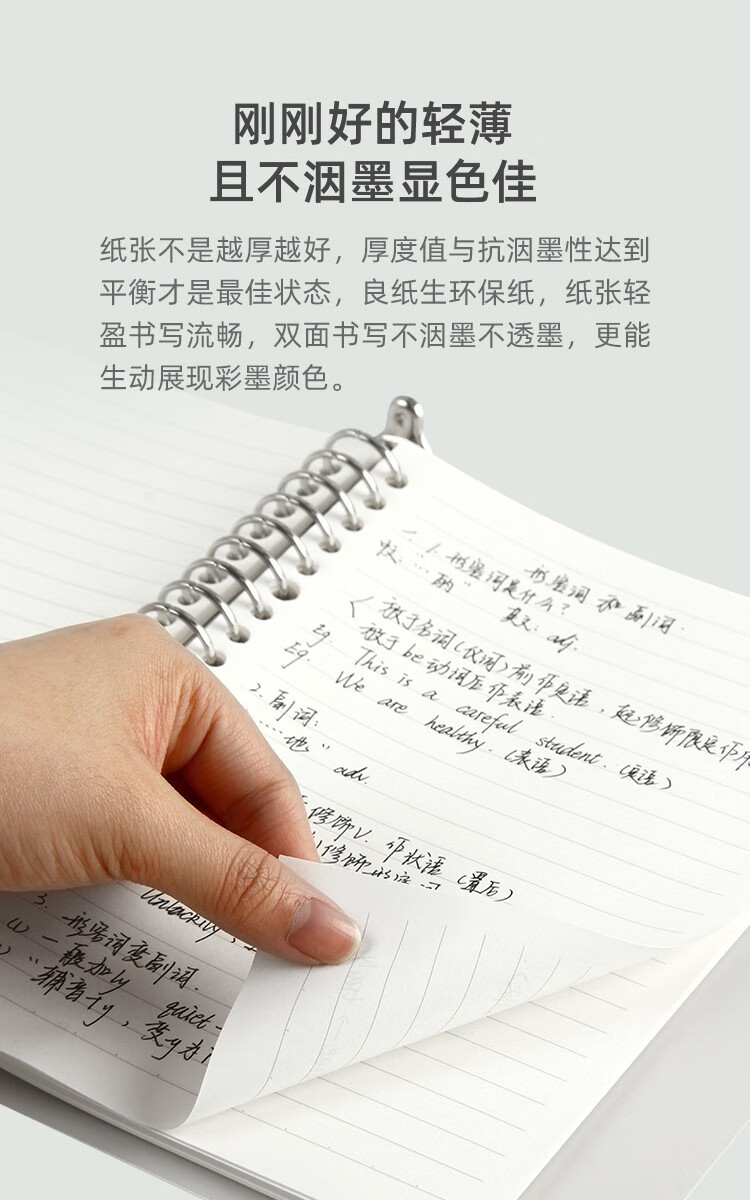 刚刚好的轻薄
且不洇墨显色佳
纸张不是越厚越好，厚度值与抗洇墨性达到
平衡才是最佳状态，良纸生环保纸，纸张轻
盈书写流畅，双面书写不洇墨不透墨，更能
生动展现彩墨颜色。
形容词和副词.
一、1.形容词是什么?
"……的" 英文: adj.
放于名词(代词)前作定语，起修饰限定作用
放于be动词后作表语.
Eg. This is a careful student. (定语)
Eg. We are healthy. (表语)
2.副词:
"……地"
adv.
修饰V. 作状语 (置后)
修饰形容词
3. 形容词变副词.
(1) 一般加ly quiet
"辅音+y, 变y为i